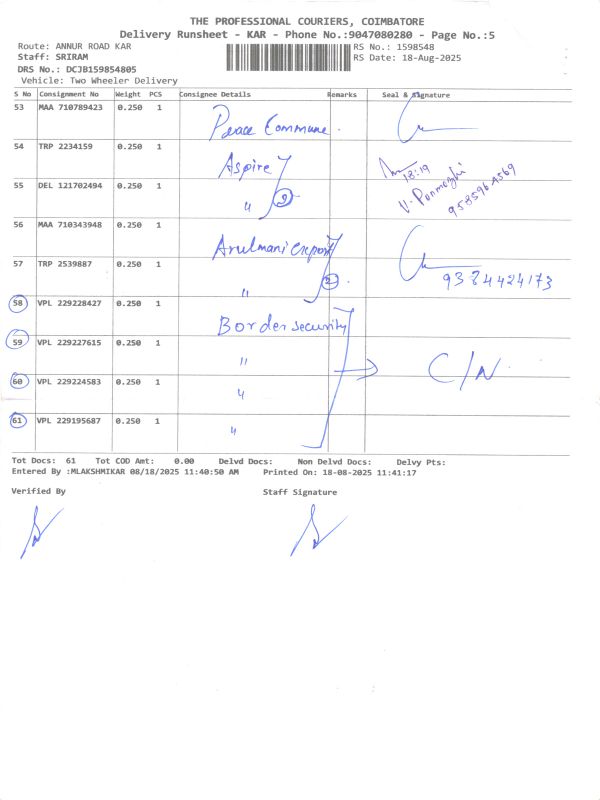 THE PROFESSIONAL COURIERS, COIMBATORE
Delivery Runsheet - KAR - Phone No.:9047080280 - Page No.:5
Route: ANNUR ROAD KAR RS No.: 1598548
Staff: SRIRAM RS Date: 18-Aug-2025
DRS No.: DCJB159854805
Vehicle: Two Wheeler Delivery
S No Consignment No Weight PCS Consignee Details Remarks Seal & Signature
53 MAA 710789423 0.250 1
Peace Commune.
54 TRP 2234159 0.250 1
Aspire
18:19
V. Ponmozhi
55 DEL 121702494 0.250 1
" 2
56 MAA 710343948 0.250 1
Arulmani Export
57 TRP 2539887 0.250 1
" 2
9384424173
58 VPL 229228427 0.250 1
Border security
59 VPL 229227615 0.250 1
"
C/N
60 VPL 229224583 0.250 1
"
61 VPL 229195687 0.250 1
"
Tot Docs: 61 Tot COD Amt: 0.00 Delvd Docs: Non Delvd Docs: Delvy Pts:
Entered By :MLAKSHMIKAR 08/18/2025 11:40:50 AM Printed On: 18-08-2025 11:41:17
Verified By Staff Signature